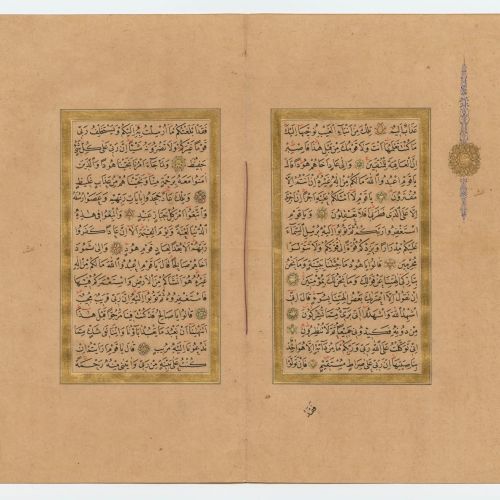 عَذَابٌ اَلِيمٌ تِلْكَ مِنْ اَنْبَاءِ الْغَيْبِ نُوحِيهَا اِلَيْكَ
مَا كُنْتَ تَعْلَمُهَا اَنْتَ وَلَا قَوْمُكَ مِنْ قَبْلِ هٰذَا فَاصْبِرْ
اِنَّ الْعَاقِبَةَ لِلْمُتَّقِينَ وَاِلَى عَادٍ اَخَاهُمْ هُودًا قَالَ
يَا قَوْمِ اعْبُدُوا اللّٰهَ مَا لَكُمْ مِنْ اِلٰهٍ غَيْرُهُ اِنْ اَنْتُمْ اِلَّا
مُفْتَرُونَ يَا قَوْمِ لَا اَسْئَلُكُمْ عَلَيْهِ اَجْرًا اِنْ اَجْرِيَ
اِلَّا عَلَى الَّذِي فَطَرَنِي اَفَلَا تَعْقِلُونَ وَيَا قَوْمِ
اسْتَغْفِرُوا رَبَّكُمْ ثُمَّ تُوبُوا اِلَيْهِ يُرْسِلِ السَّمَاءَ
عَلَيْكُمْ مِدْرَارًا وَيَزِدْكُمْ قُوَّةً اِلَى قُوَّتِكُمْ وَلَا تَتَوَلَّوْا
مُجْرِمِينَ قَالُوا يَا هُودُ مَا جِئْتَنَا بِبَيِّنَةٍ وَمَا نَحْنُ
بِتَارِكِي اٰلِهَتِنَا عَنْ قَوْلِكَ وَمَا نَحْنُ لَكَ بِمُؤْمِنِينَ
اِنْ نَقُولُ اِلَّا اعْتَرٰيكَ بَعْضُ اٰلِهَتِنَا بِسُوءٍ قَالَ اِنِّي
اُشْهِدُ اللّٰهَ وَاشْهَدُوا اَنِّي بَرِيءٌ مِمَّا تُشْرِكُونَ
مِنْ دُونِهِ فَكِيدُونِي جَمِيعًا ثُمَّ لَا تُنْظِرُونِ
اِنِّي تَوَكَّلْتُ عَلَى اللّٰهِ رَبِّي وَرَبِّكُمْ مَا مِنْ دَابَّةٍ اِلَّا هُوَ اٰخِذٌ
بِنَاصِيَتِهَا اِنَّ رَبِّي عَلَى صِرَاطٍ مُسْتَقِيمٍ فَاِنْ تَوَلَّوْا
فَقَدْ
فَقَدْ اَبْلَغْتُكُمْ مَا اُرْسِلْتُ بِهِ اِلَيْكُمْ وَيَسْتَخْلِفُ رَبِّي
قَوْمًا غَيْرَكُمْ وَلَا تَضُرُّونَهُ شَيْئًا اِنَّ رَبِّي عَلَى كُلِّ شَيْءٍ
حَفِيظٌ وَلَمَّا جَاءَ اَمْرُنَا نَجَّيْنَا هُودًا وَالَّذِينَ
اٰمَنُوا مَعَهُ بِرَحْمَةٍ مِنَّا وَنَجَّيْنَاهُمْ مِنْ عَذَابٍ غَلِيظٍ
وَتِلْكَ عَادٌ جَحَدُوا بِاٰيَاتِ رَبِّهِمْ وَعَصَوْا رُسُلَهُ
وَاتَّبَعُوا اَمْرَ كُلِّ جَبَّارٍ عَنِيدٍ وَاُتْبِعُوا فِي هٰذِهِ
الدُّنْيَا لَعْنَةً وَيَوْمَ الْقِيٰمَةِ اَلَا اِنَّ عَادًا كَفَرُوا
رَبَّهُمْ اَلَا بُعْدًا لِعَادٍ قَوْمِ هُودٍ وَاِلَى ثَمُودَ
اَخَاهُمْ صَالِحًا قَالَ يَا قَوْمِ اعْبُدُوا اللّٰهَ مَا لَكُمْ مِنْ اِلٰهٍ
غَيْرُهُ هُوَ اَنْشَاَكُمْ مِنَ الْاَرْضِ وَاسْتَعْمَرَكُمْ فِيهَا
فَاسْتَغْفِرُوهُ ثُمَّ تُوبُوا اِلَيْهِ اِنَّ رَبِّي قَرِيبٌ مُجِيبٌ
قَالُوا يَا صَالِحُ قَدْ كُنْتَ فِينَا مَرْجُوًّا قَبْلَ هٰذَا
اَتَنْهٰينَا اَنْ نَعْبُدَ مَا يَعْبُدُ اٰبَاؤُنَا وَاِنَّنَا لَفِي شَكٍّ مِمَّا
تَدْعُونَا اِلَيْهِ مُرِيبٍ قَالَ يَا قَوْمِ اَرَاَيْتُمْ اِنْ
كُنْتُ عَلَى بَيِّنَةٍ مِنْ رَبِّي وَاٰتٰينِي مِنْهُ رَحْمَةً